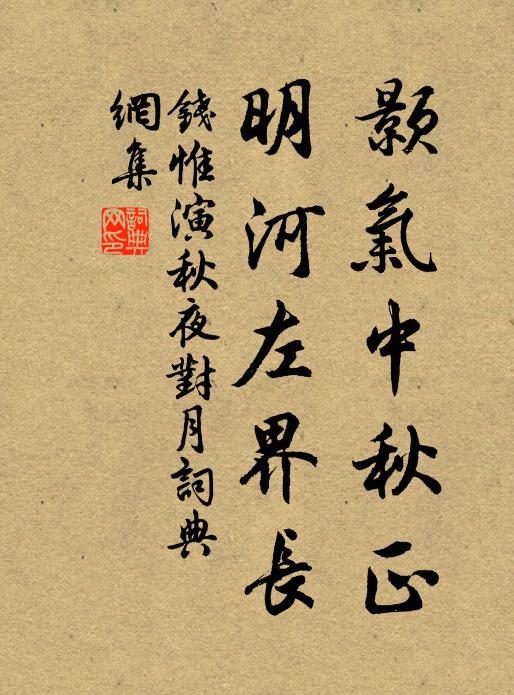 顥氣中秋正
明河左界長
錢惟演秋夜對月詞典
網集
詞典網印